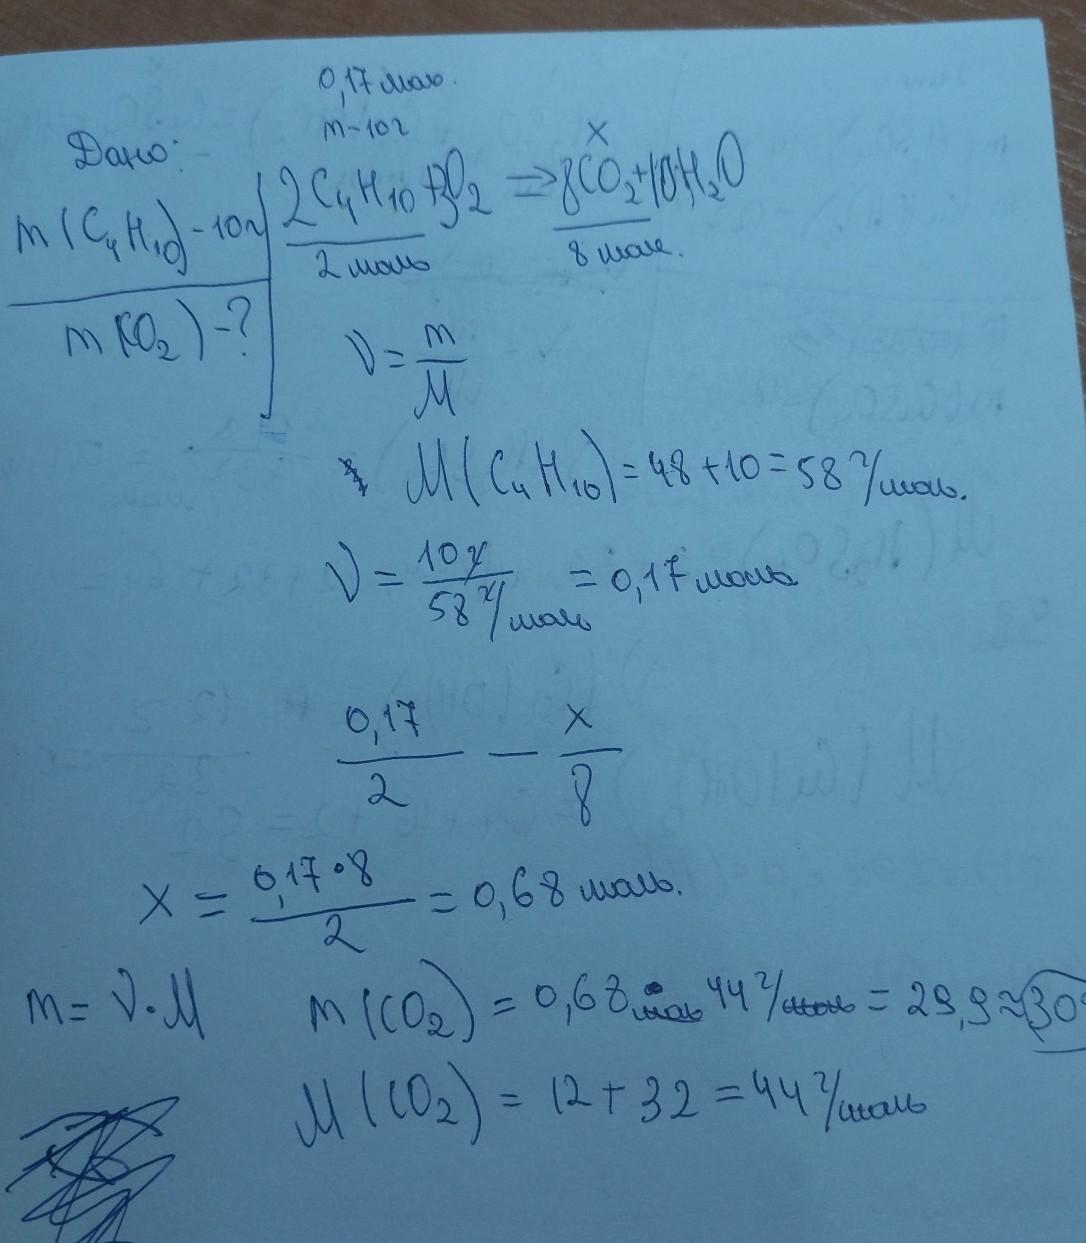 0,17 моль.
m-10г
Дано:
x
m(C₄H₁₀)-10г 2C₄H₁₀+13O₂ => 8CO₂+10H₂O
2 моль 8 моль.
m(CO₂)-?
ν = m/M
M(C₄H₁₀)=48+10=58 г/моль.
ν = 10г/58 г/моль = 0,17 моль
0,17/2 — x/8
x = 0,17•8/2 = 0,68 моль.
m=ν·M m(CO₂) = 0,68 моль • 44 г/моль = 29,9≈30
M(CO₂) = 12 + 32 = 44 г/моль